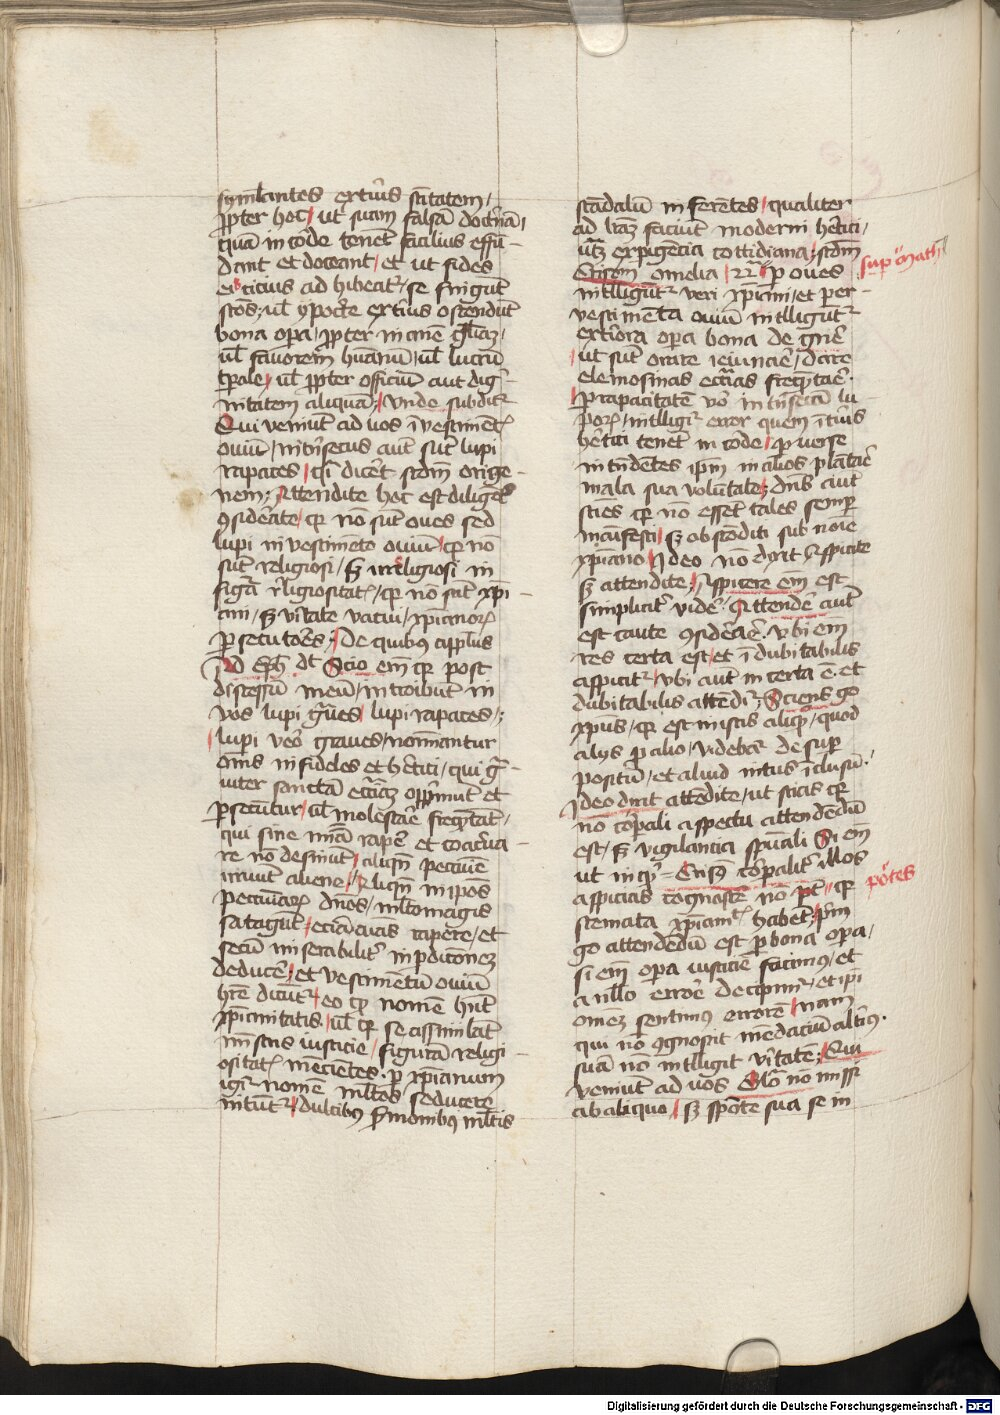 symulantes exterius sanctitatem /
propter hoc / ut suam falsam doctrinam /
quam in corde tenent facilius effu-
dant et doceant / et ut fides
eis cicius ad hibeatur / se fingunt
bona opera / propter inanem gloriam /
vel favorem humanum / vel lucrum
temporale / vel propter officium aut dig-
nitatem aliquam / Unde subditur
Qui veniunt ad vos in vestimentis
ovium / intrinsecus autem sunt lupi
rapaces / secundum orige-
nem / Attendite hoc est diligenter
considerate / quod non sunt oves sed
lupi in vestimento ovium / quia non
sunt religiosi / sed irreligiosi in
figura religiositatis / quia non sunt christi-
ani / sed veritate vacui / christianorum
persecutores / De quibus apostolus
Ad Eph dicit Scio enim quod post
discessum meum / introibunt in
vos lupi graves / lupi rapaces /
lupi vero graves / nominantur
omnes infideles et heretici / qui gra-
viter sanctam ecclesiam opprimunt et
persecuntur / vel molestare frequentant /
qui sine misericordia rapere et coacerva-
re non desinunt /
deducere / et vestimentum ovium
habere dicuntur / eo quod nomen habent
christianitatis / vel quia se assimilant
ministris iusticie / figuram religi-
ositatis mencientes / per christianum
igitur nomen multos seducere
nituntur / dulcibus sermonibus multis
scandalum inferentes / qualiter
ad litteram faciunt moderni heretici /
Crisostomum omelia
intelliguntur veri christiani / et per
vestimenta ovium intelliguntur
exteriora opera bona de genere
ut sunt orare ieiunare / dare
elemosinas ecclesias frequentare
per rapacitatem vero intrinsecam lu-
porum / intelligitur error quem interius
heretici tenent in corde / perverse
intendentes ipsum in alios plantare
mala sua voluntate / dominus autem
sciens quod non essent tales semper
manifesti / sed absconditi sub nomine
christiano / Ideo non dixit aspicite
sed attendite / Aspicere enim est
simpliciter videre / Attendere autem
est caute considerare / Ubi enim
res certa est / et indubitabilis
aspicitur / ubi autem incerta est et
dubitabilis attenditur / Sciens ergo
christus / quod est in istis aliquid / quod
aliis pro alio / videbatur desuper
positum / et aliud intus inclusum /
Ideo dixit attendite / ut scias quod
non corporali aspectu attendendum
est / sed vigilantia spirituali Si enim
corporaliter illos
aspicias cognoscere non potes quia
scemata christianitatis habent / primum
ergo attendendum est per bona opera /
si enim opera iusticie facimus / et
a nullo errore decipimur / et ipsi
omnem sentimus errorem / nam
qui non cognoscit mendacium alterius
suam non intelligit veritatem / Qui
veniunt ad vos Glosa non missi
ab aliquo / sed sponte sua se in
super math
potes
Digitalisierung gefördert durch die Deutsche Forschungsgemeinschaft - DFG